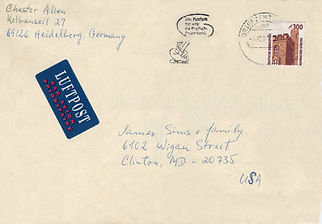 Chester Allen
Kolbenzeil 27
69126 Heidelberg, Germany
300
LUFTPOST
PAR AVION
PRIORITAIRE
James Sims + family
6102 Wigan Street
Clinton, MD - 20735
USA